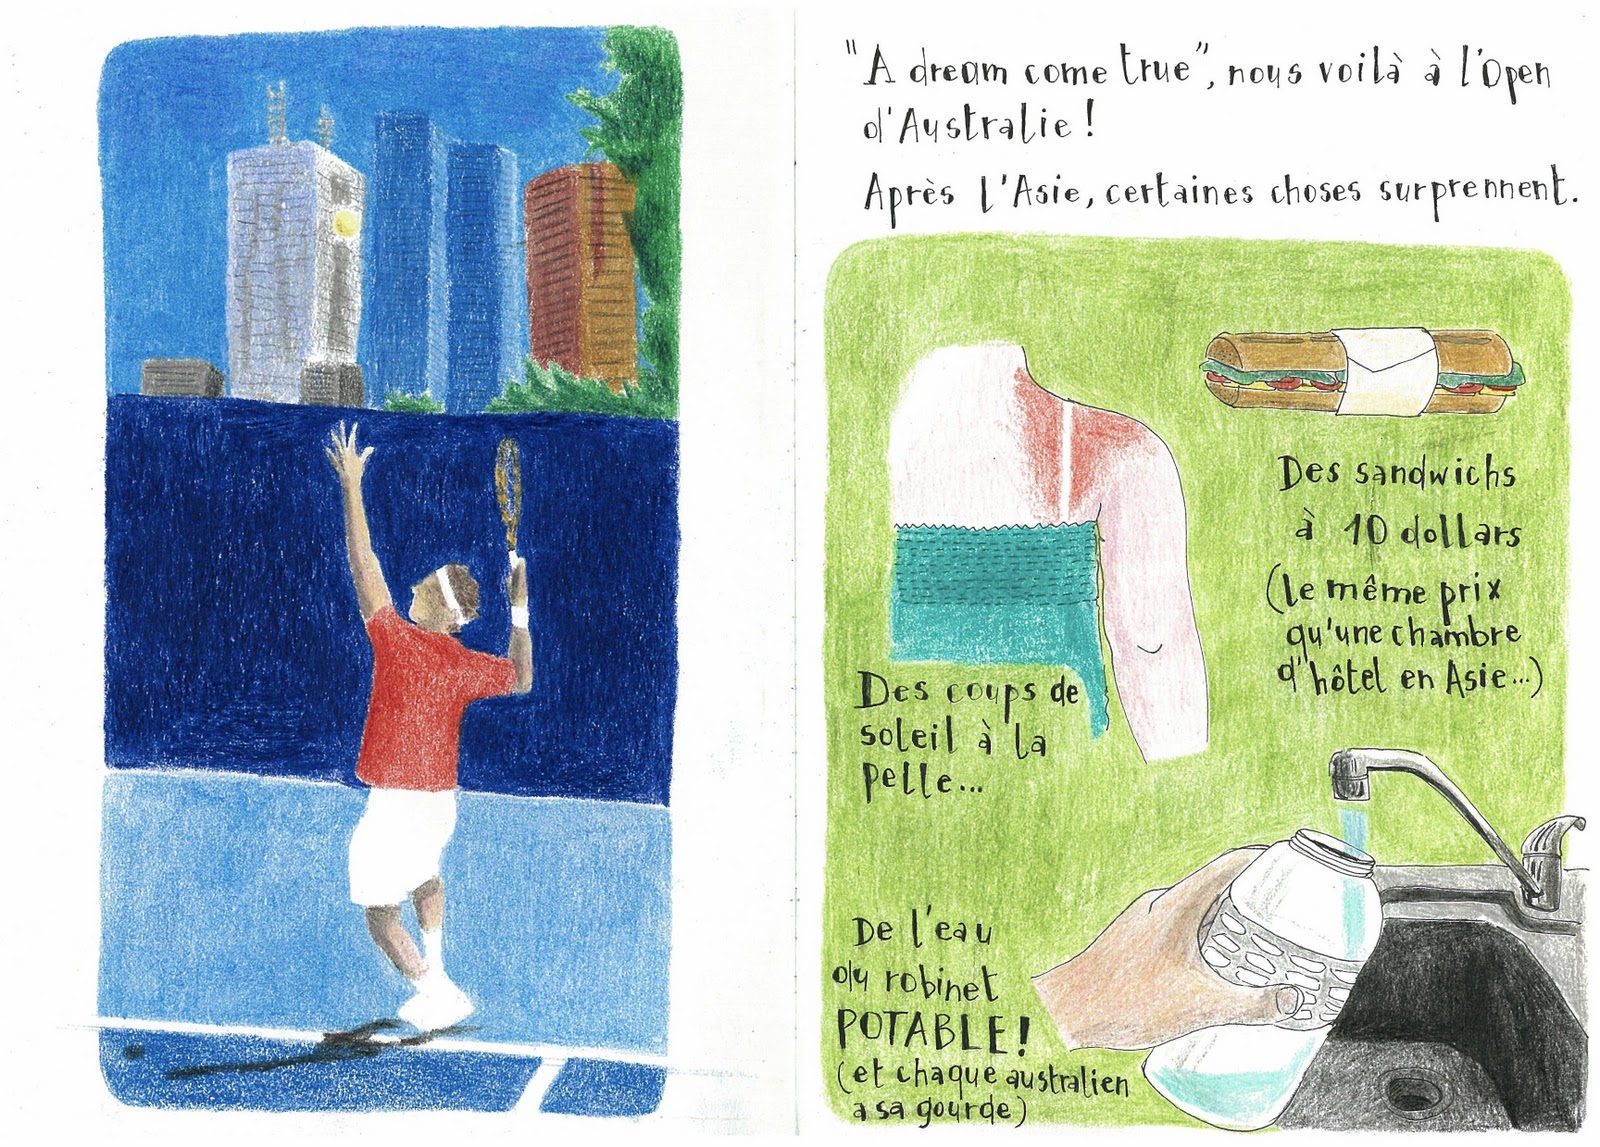 "A dream come true", nous voilà à l'Open
d'Australie !
Après l'Asie, certaines choses surprennent.
Des sandwichs
à 10 dollars
(le même prix
qu'une chambre
d'hôtel en Asie...)
Des coups de
soleil à la
pelle...
De l'eau
du robinet
POTABLE !
(et chaque australien
a sa gourde)